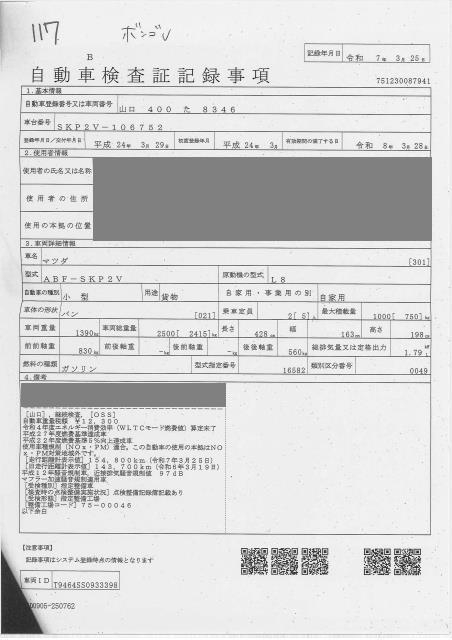 117 ボンゴV
記録年月日 令和 7年 3月 25日
B
自動車検査証記録事項
751230087941
1.基本情報
自動車登録番号又は車両番号 山口 400 た 8346
車台番号 SKP2V-106752
登録年月日/交付年月日 平成 24年 3月 29日 初度登録年月 平成 24年 3月 有効期間の満了する日 令和 8年 3月 28日
2.使用者情報
使用者の氏名又は名称
使用者の住所
使用の本拠の位置
3.車両詳細情報
車名 マツダ [301]
型式 ABF-SKP2V 原動機の型式 L8
自動車の種別 小型 用途 貨物 自家用・事業用の別 自家用
車体の形状 バン [021] 乗車定員 2[ 5]人 最大積載量 1000[ 750]kg
車両重量 1390kg 車両総重量 2500[ 2415]kg 長さ 428cm 幅 163cm 高さ 198cm
前前軸重 830kg 前後軸重 -kg 後前軸重 -kg 後後軸重 560kg 総排気量又は定格出力 1.79
燃料の種類 ガソリン 型式指定番号 16582 類別区分番号 0049
4.備考
[山口],継続検査,[OSS]
自動車重量税額 ¥12,300
令和4年度エネルギー消費効率(WLTCモード燃費値)算定未了
平成27年度燃費基準達成車
平成22年度燃費基準5%向上達成車
使用車種規制(NOx・PM)適合,この自動車の使用の本拠はNO
x・PM対策地域外です。
[走行距離計表示値]154,800km(令和7年3月25日)
[旧走行距離計表示値]143,700km(令和6年3月19日)
平成12年騒音規制車,近接排気騒音規制値 97dB
マフラー加速騒音規制適用車
[受検種別]指定整備車
[検査時の点検整備実施状況]点検整備記録簿記載あり
[受検形態]指定整備工場
[整備工場コード]75-00046
以下余白
【注意事項】
記録事項はシステム登録時点の情報となります
車両ID T9464SS0933398
00905-250762